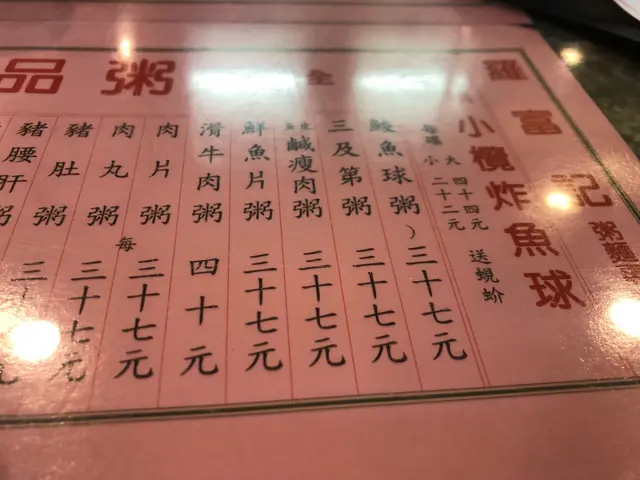 羅富記
粥麵
小欖炸魚球
每碟
大 四十四元
小 二十二元
送蜆蚧
品粥
全
鯪魚球粥）三十七元
三及第粥 三十七元
鹹瘦肉粥 三十七元
鮮魚片粥 三十七元
滑牛肉粥 四十元
肉片粥 三十七元
每
肉丸粥 三十七元
豬肚粥 三十七元
豬腰肝粥 三